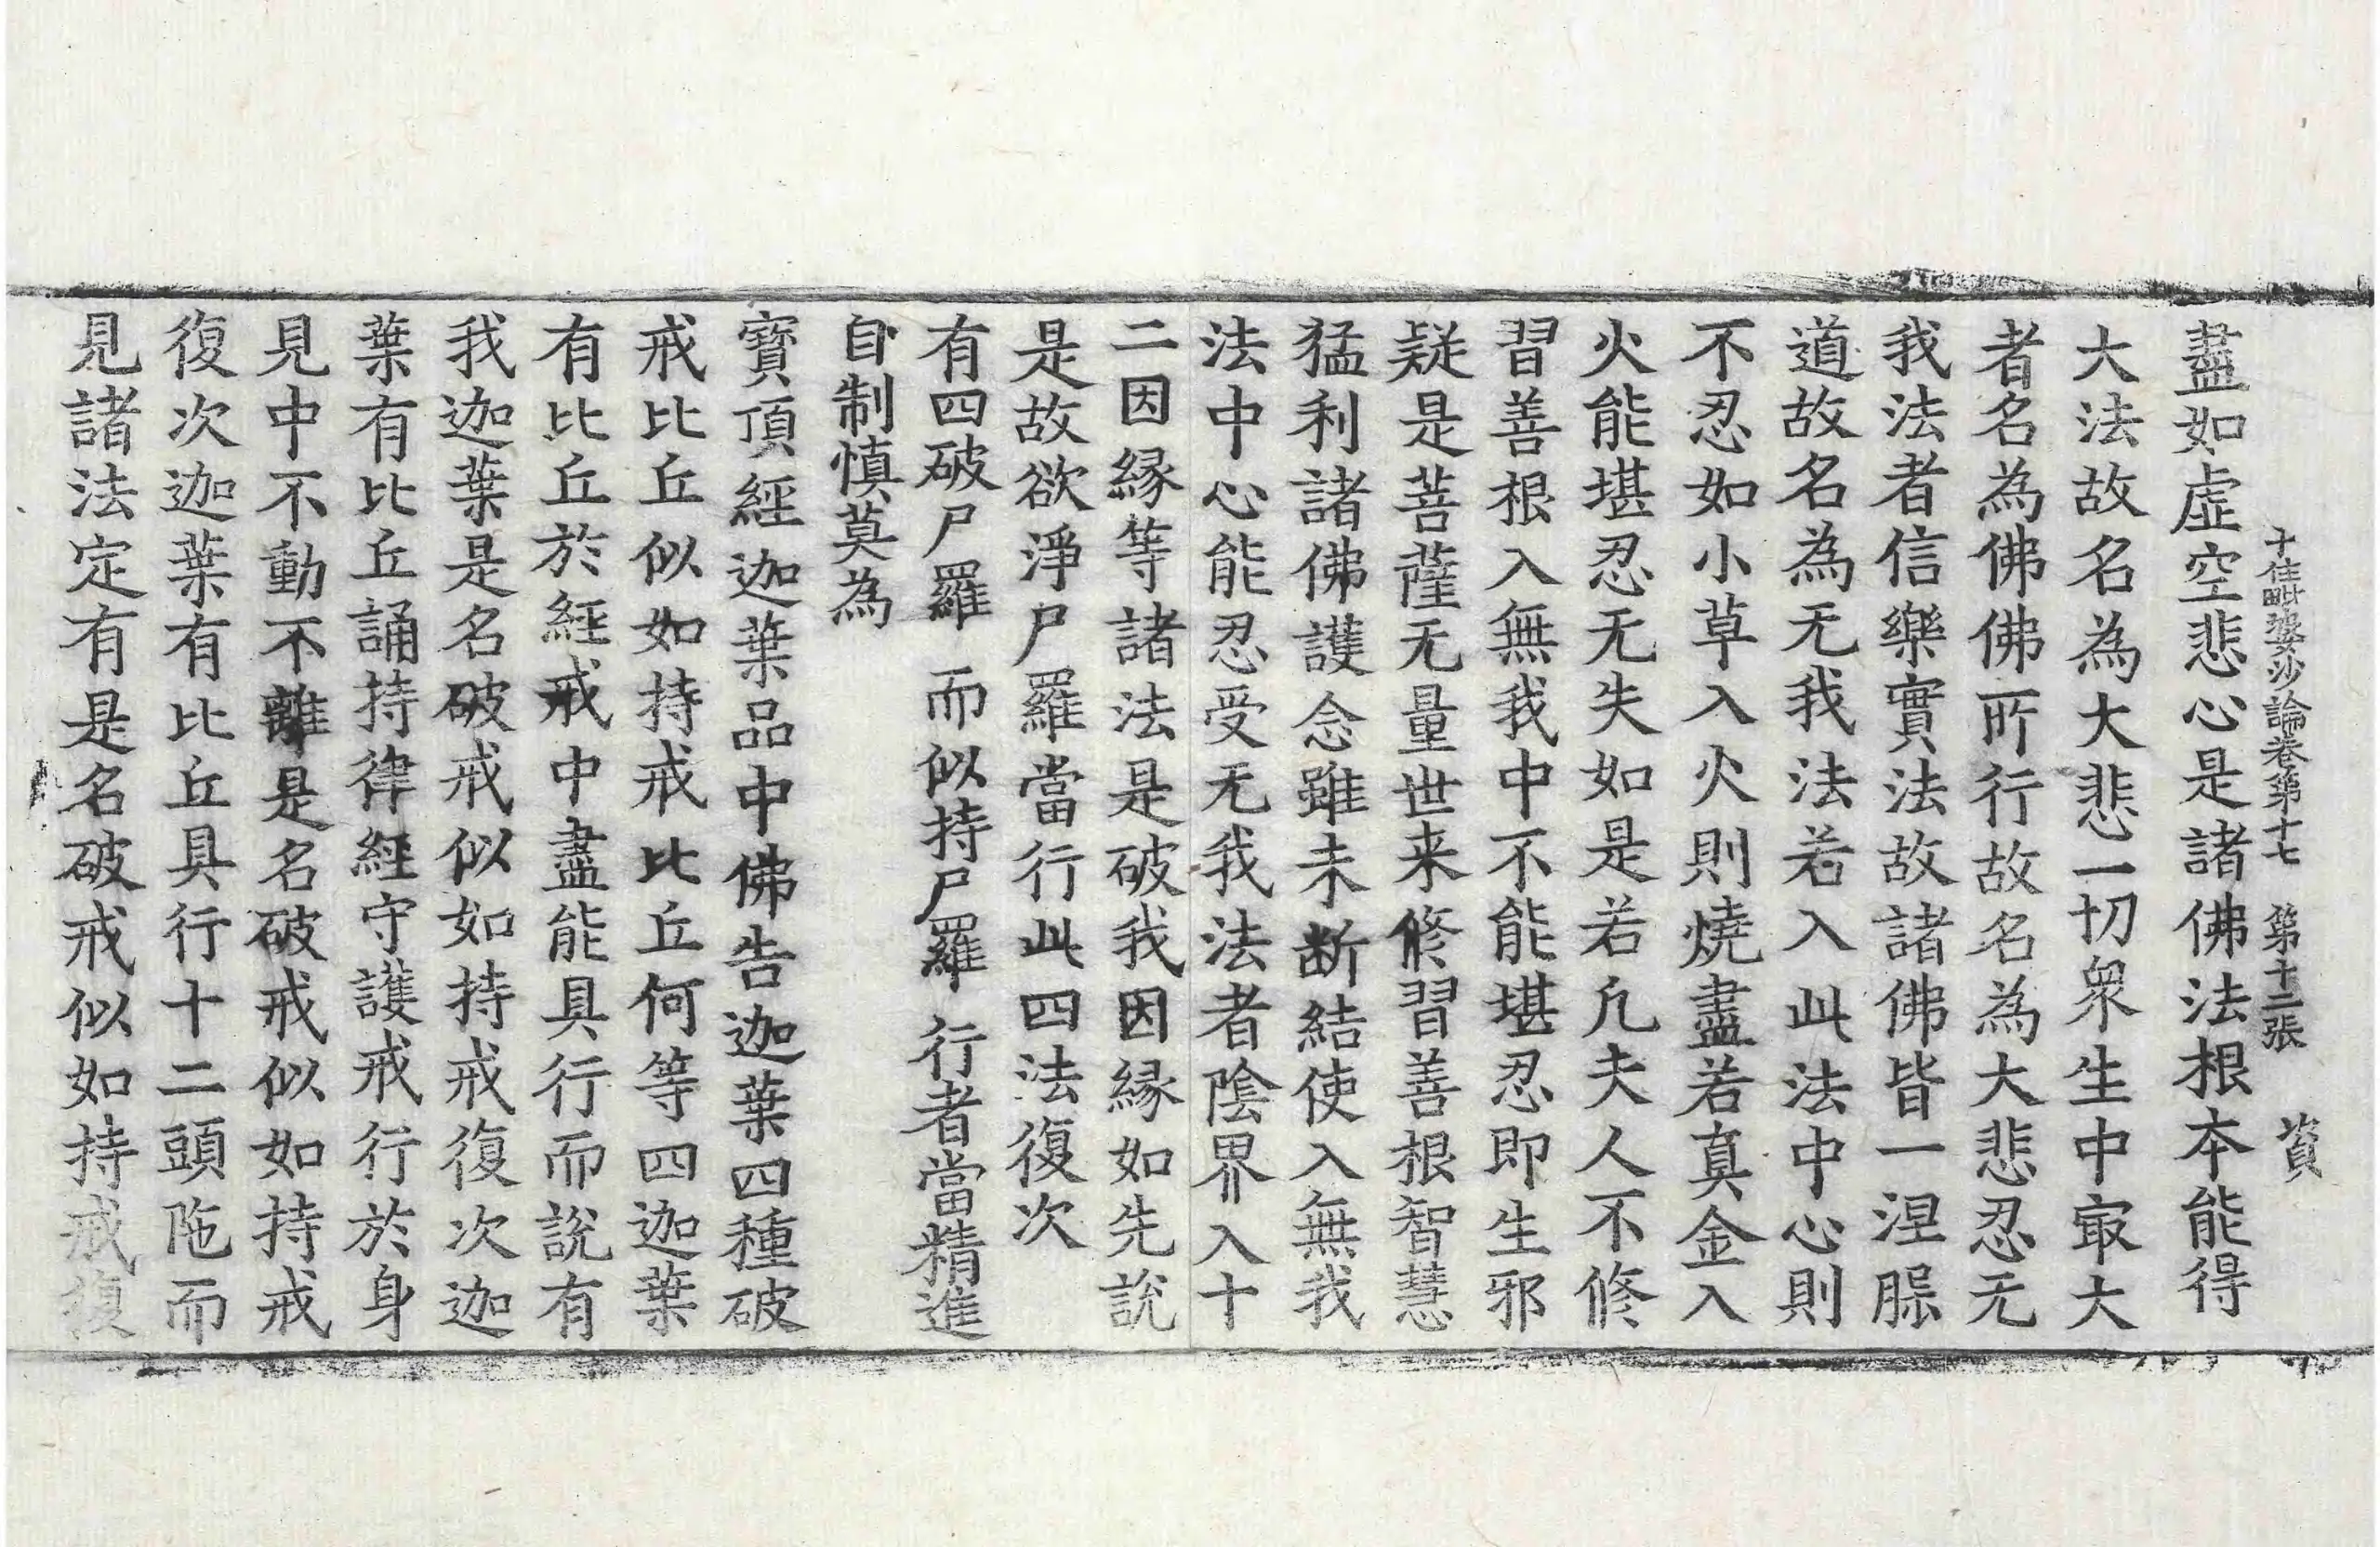 十住毗婆沙論卷第十七 第十二張 資
盡如虛空悲心是諸佛法根本能得
大法故名為大悲一切衆生中㝡大
者名為佛佛所行故名為大悲忍无
我法者信樂實法故諸佛皆一涅脲
道故名為无我法若入此法中心則
不忍如小草入火則燒盡若真金入
火能堪忍无失如是若凢夫人不修
習善根入無我中不能堪忍即生邪
疑是菩薩无量世来修習善根智慧
猛利諸佛護念雖未断結使入無我
法中心能忍受无我法者陰界入十
二因緣等諸法是破我因緣如先說
是故欲淨尸羅當行此四法復次
有四破尸羅 而似持尸羅 行者當精進
自制慎莫為
寶頂經迦葉品中佛告迦葉四種破
戒比丘似如持戒比丘何等四迦葉
有比丘於經戒中盡能具行而說有
我迦葉是名破戒似如持戒復次迦
葉有比丘誦持律經守護戒行於身
見中不動不離是名破戒似如持戒
復次迦葉有比丘具行十二頭陁而
見諸法定有是名破戒似如持戒復